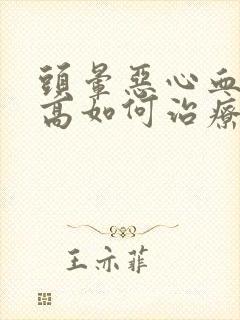 頭暈惡心血
高如何治療
王亦菲